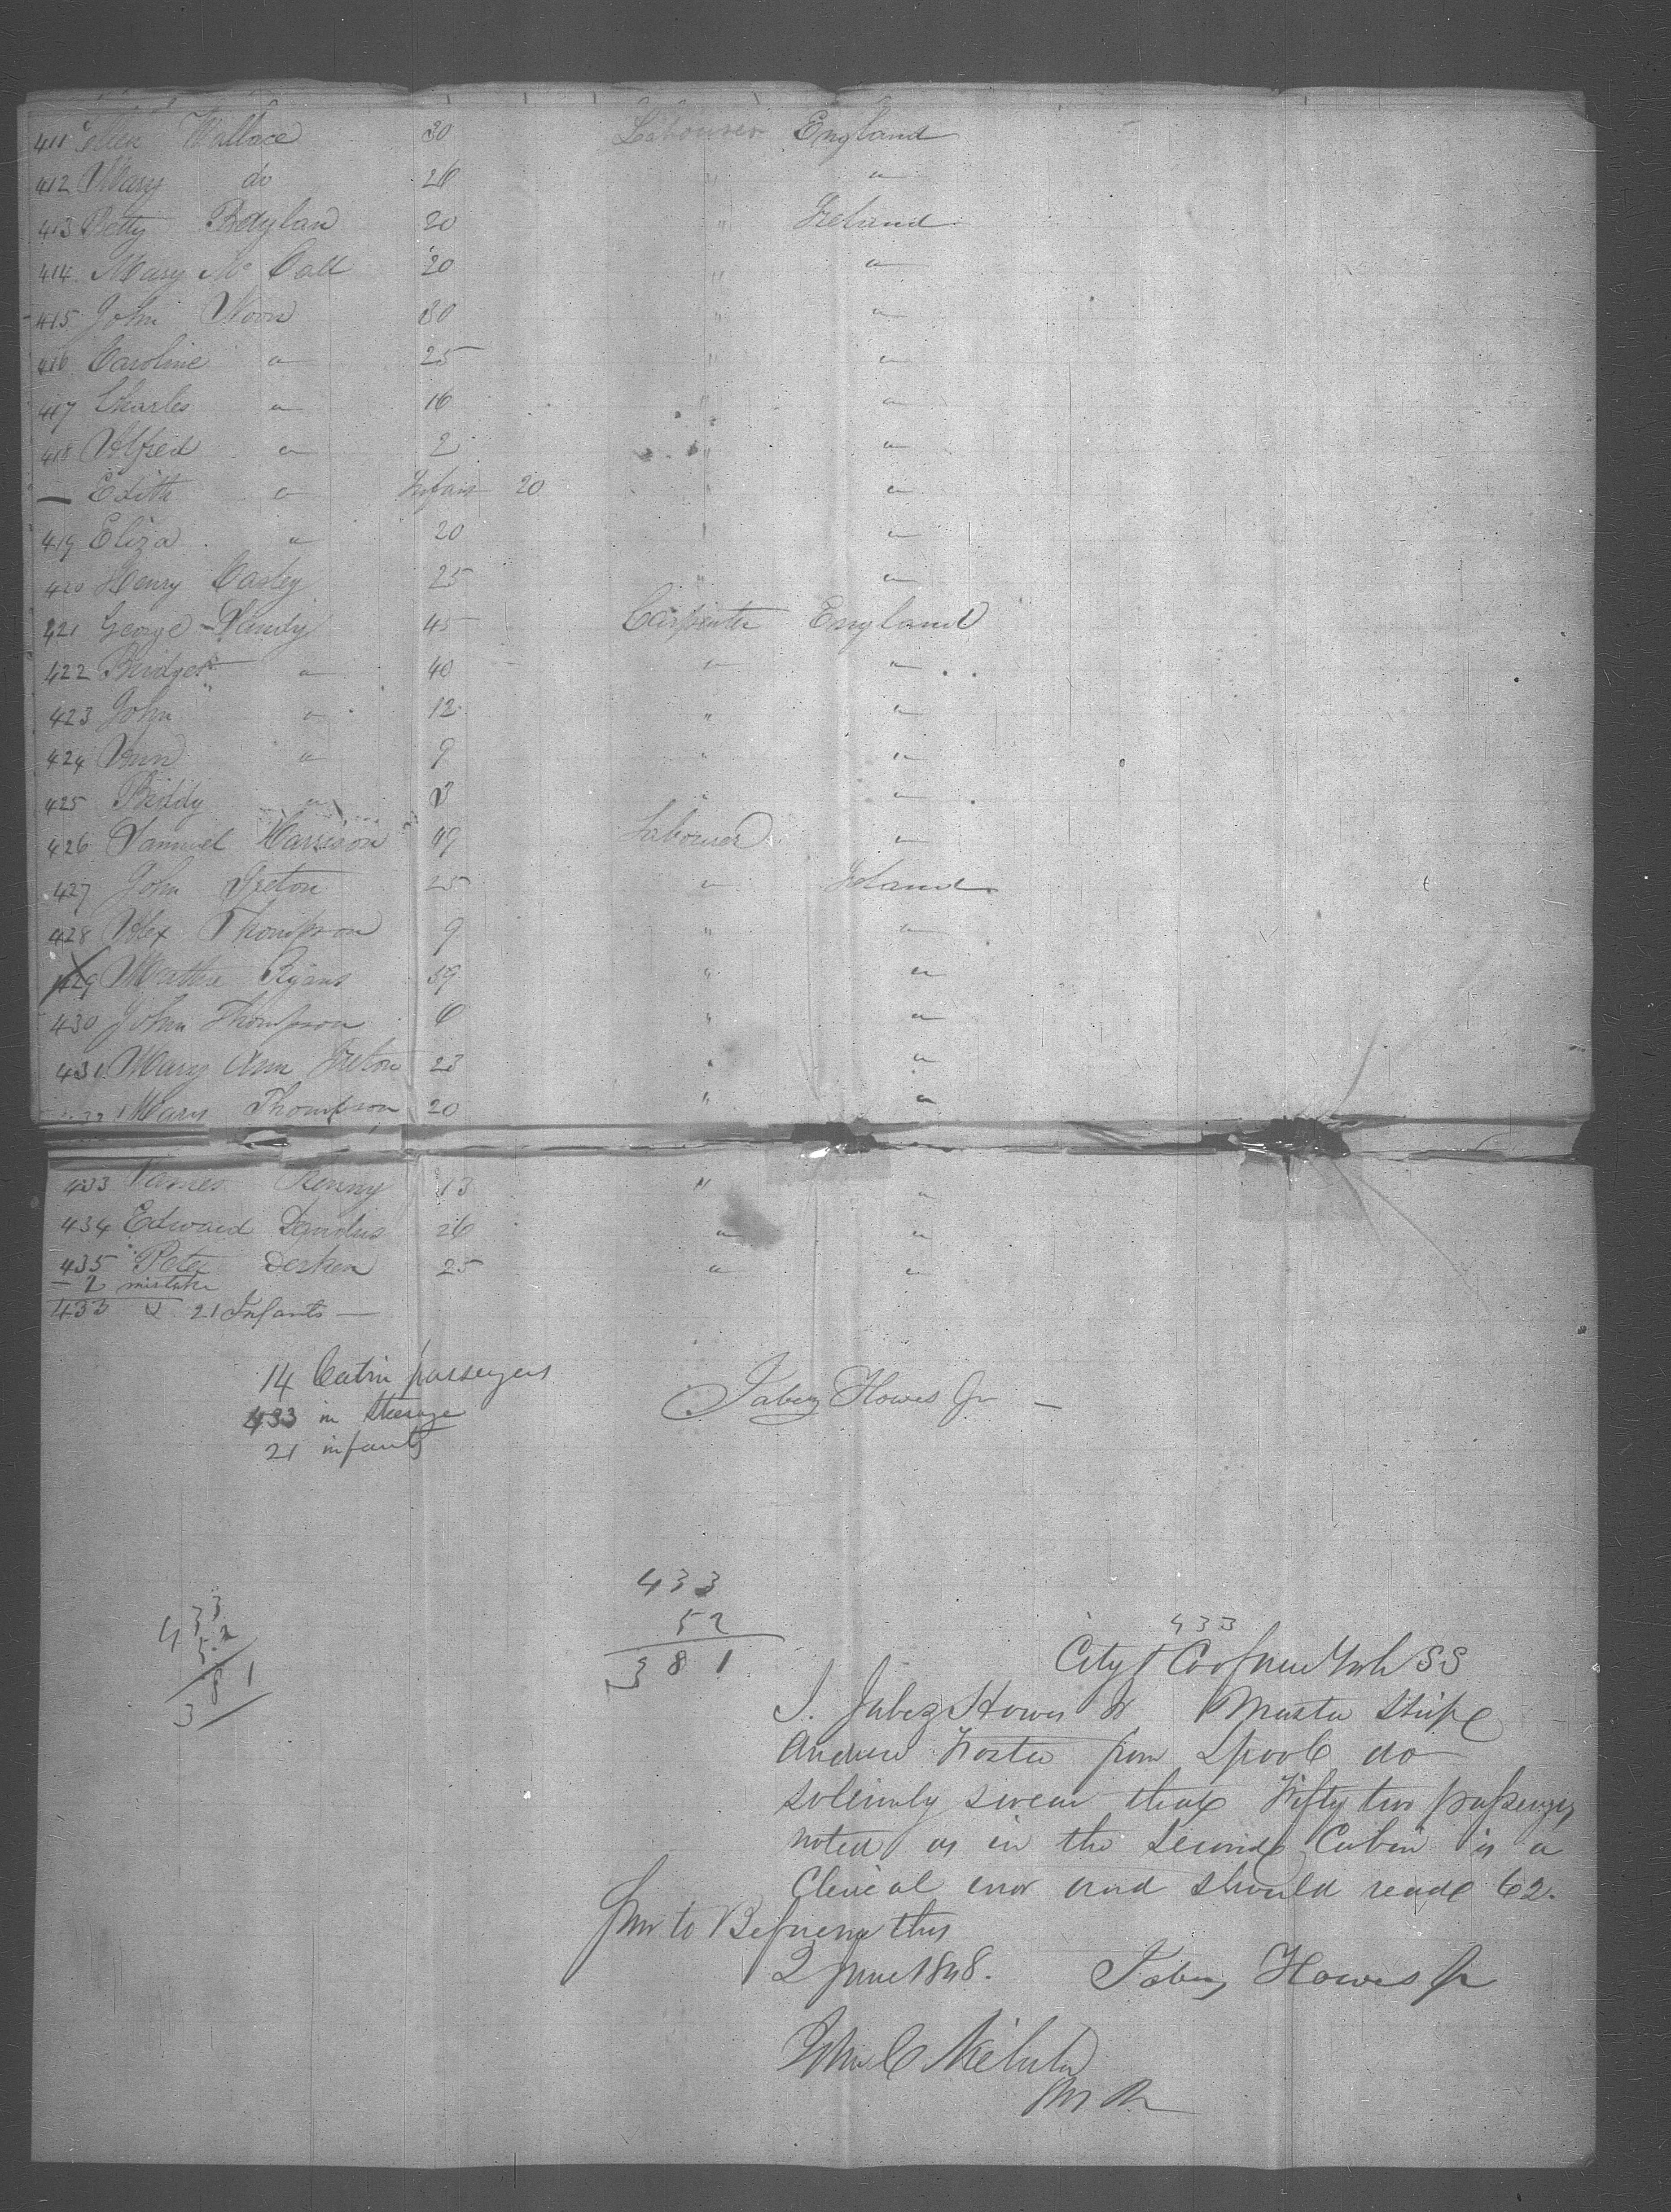 411 Ellen Wallace 30 Labourer England
412 Mary do 26 " "
413 Betty Boylan 20 " Ireland
414 Mary Mc Call 20 " "
415 John Noon 30 " "
416 Caroline " 25 " "
417 Charles " 16 " "
418 Alfred " 2 " "
— Edith " Infant 20 "
419 Eliza " 20 "
420 Henry Casley 25 " "
421 George 45 Carpenter England
422 Bridget " 40 " "
423 John " 12 " "
424 Ann " 9 " "
425 Biddy " 3 " "
426 Samuel Harrison 49 Labourer "
427 John Ireton 25 " Ireland
428 Alex Thompson 9 " "
429 Martha Ryans 59 " "
430 John Thompson 6 " "
431 Mary Ann Ireton 23 " "
432 Mary Thompson 20 " "
433 James Kenny 13 " "
434 Edward 26 " "
435 Peter 25 " "
— 2 mistake
433 & 21 Infants —
14 Cabin passengers
433 in Steerage
21 infants
Jabez Howes Jr —
433
52
381
433
52
381
433
City & Co of New York SS
I. Jabez Howes Jr Master Ship
Andrew Foster from Lpool do
solemnly swear that Fifty two passengers
noted as in the Second Cabin is a
Clerical error and should read 62.
Swn to Before me this
2 June 1848. Jabez Howes Jr
John C